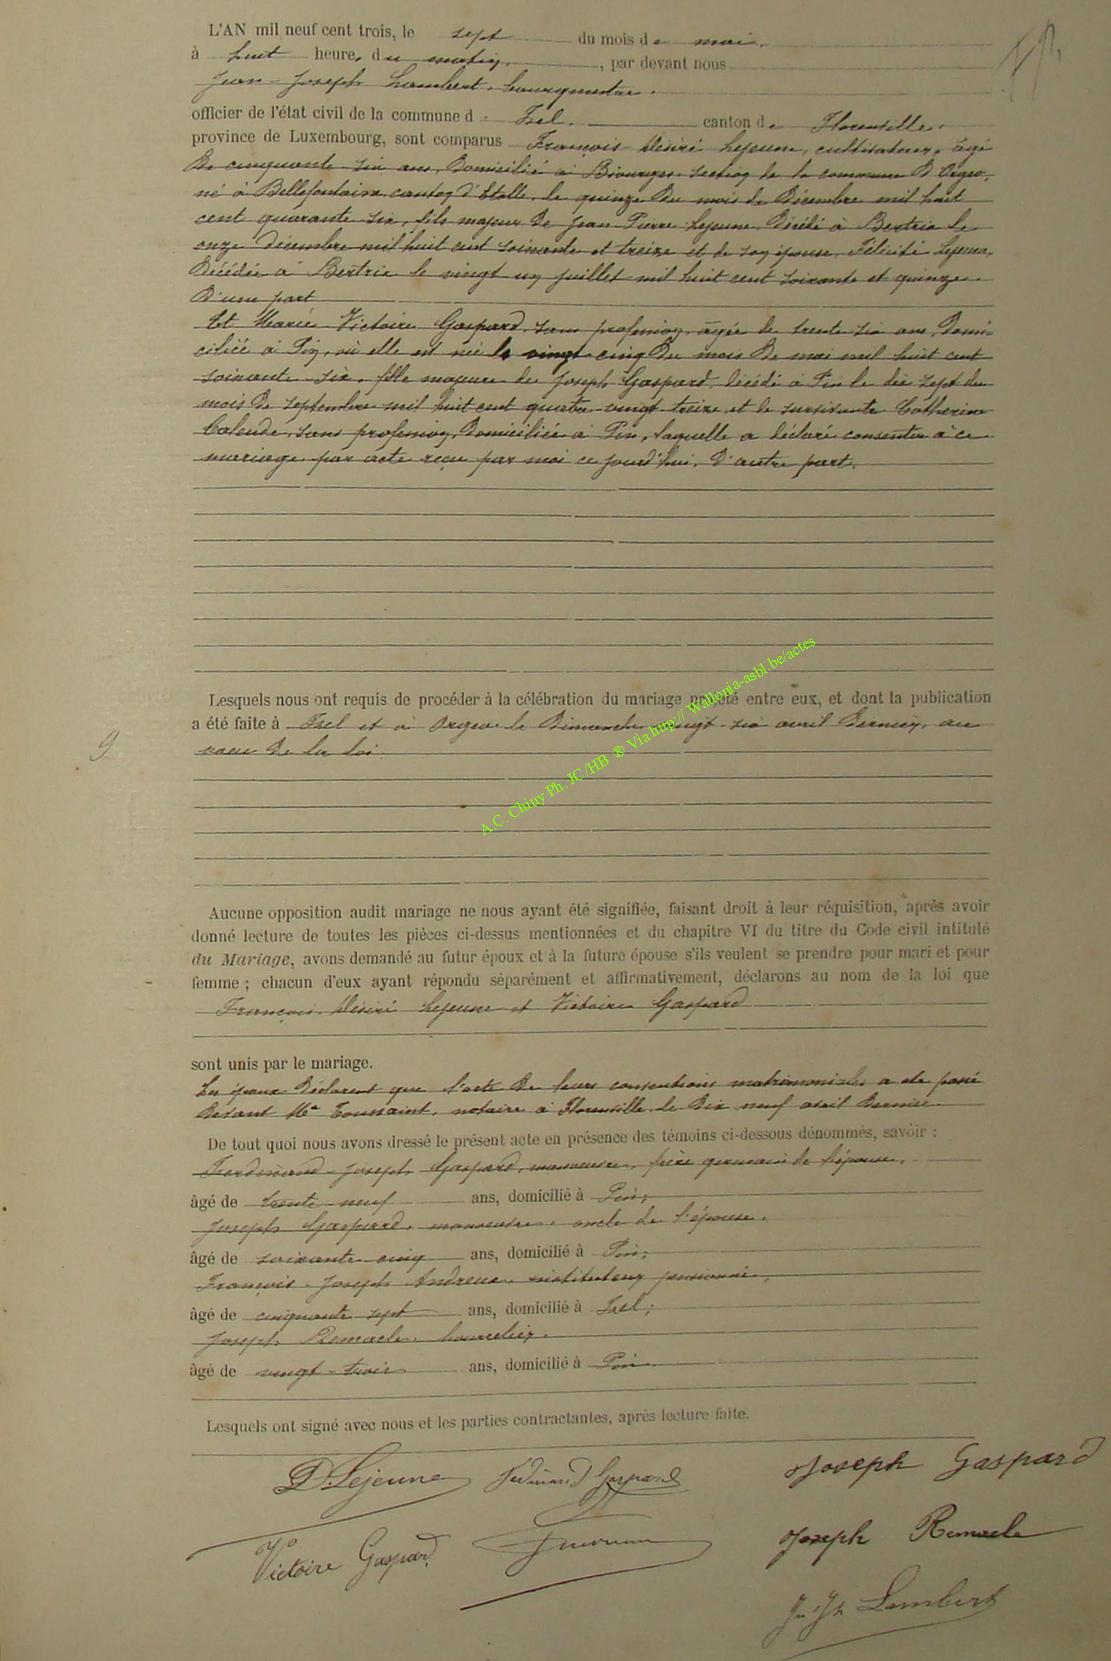 L'AN mil neuf cent trois, le sept du mois de mai,
à huit heures du matin, par devant nous
Jean-Joseph Lambert, bourgmestre,
officier de l'état civil de la commune d' Izel, canton de Florenville,
province de Luxembourg, sont comparus François Désiré Lejeune, cultivateur, âgé
de cinquante six ans, domicilié à Biourge, section de la commune d'Orgeo,
né à Bellefontaine canton d'Etalle, le quinze du mois de Décembre mil huit
cent quarante six, fils majeur de Jean Pierre Lejeune, décédé à Bertrix le
onze décembre mil huit cent soixante et treize et de son épouse, Félicité
Décédée à Bertrix le vingt un juillet mil huit cent soixante et quinze
D'une part
Et Marie Victoire Gaspard, sans profession, âgée de trente six ans, domi-
ciliée à Pin, où elle est née le vingt cinq du mois de mai mil huit cent
soixante-six, fille majeure de Joseph Gaspard, décédé à Pin le dix sept du
mois de septembre mil huit cent quatre-vingt treize et de survivante Catherine
sans profession, domiciliée à Pin, laquelle a déclaré consentir à ce
mariage par acte reçu par moi ce jourd'hui, d'autre part.
Lesquels nous ont requis de procéder à la célébration du mariage projeté entre eux, et dont la publication
a été faite à Izel et à Orgeo le Dimanche vingt-six avril dernier, au
vœu de la loi.
9
A.C. Chiny Ph. JC/HB ® Via http:// Wallonia-asbl.be/actes
Aucune opposition audit mariage ne nous ayant été signifiée, faisant droit à leur réquisition, après avoir
donné lecture de toutes les pièces ci-dessus mentionnées et du chapitre VI du titre du Code civil intitulé
du Mariage, avons demandé au futur époux et à la future épouse s'ils veulent se prendre pour mari et pour
femme ; chacun d'eux ayant répondu séparément et affirmativement, déclarons au nom de la loi que
François Désiré Lejeune et Victoire Gaspard
sont unis par le mariage.
Les époux déclarent que l'acte de leurs conventions matrimoniales a été passé
devant Me Toussaint, notaire à Florenville le dix neuf avril dernier.
De tout quoi nous avons dressé le présent acte en présence des témoins ci-dessous dénommés, savoir :
Ferdinand-Joseph Gaspard, manœuvre, frère germain de l'épouse,
âgé de trente-neuf ans, domicilié à Pin;
Joseph Gaspard, manœuvre, oncle de l'épouse,
âgé de soixante-cinq ans, domicilié à Pin;
François-Joseph Andreux, instituteur pensionné,
âgé de cinquante sept ans, domicilié à Izel;
Joseph Remacle, bourrelier,
âgé de vingt-trois ans, domicilié à Pin.
Lesquels ont signé avec nous et les parties contractantes, après lecture faite.
D. Lejeune Ferdinand Gaspard Joseph Gaspard
Victoire Gaspard Joseph Remacle
Jn Jh Lambert